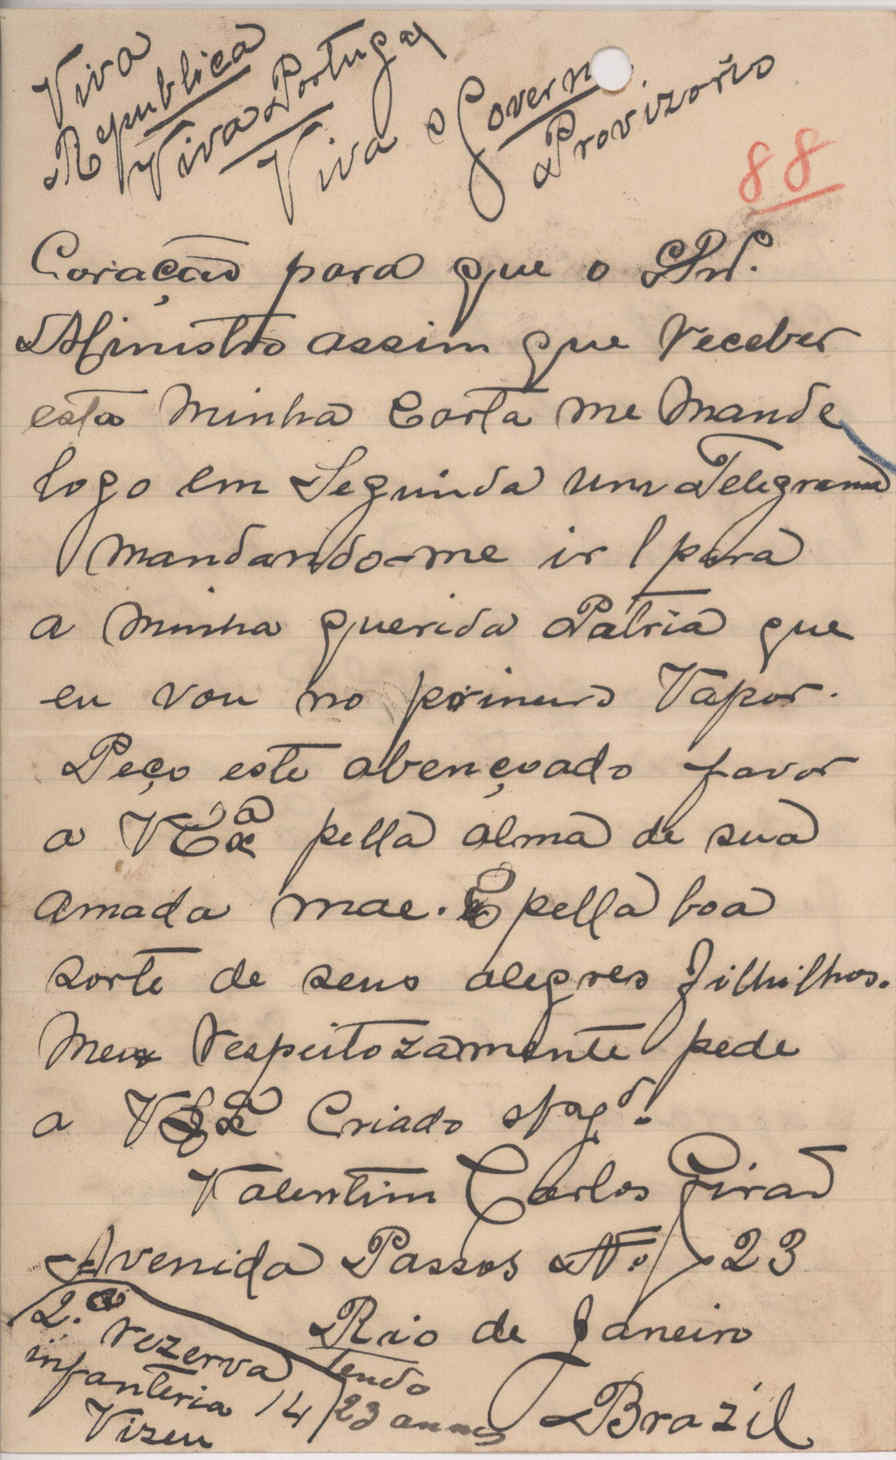 Viva
Republica
Viva Portugal
Viva o Governo
Provizorio
88
Coração para que o Snr.
Ministro assim que receber
esta minha Carta me mande
logo em Seguinda um Telegrama
mandando-me ir para
a minha querida Patria que
eu vou no primeiro Vapor.
Peço este abençoado favor
a VEx.ª pella alma de sua
amada mae. E pella boa
sorte de seus alegres filhilhos.
Meu respeitozamente pede
a VEx.ª Criado
Valentim Carlos Girão
Avenida Passos No. 23
Rio de Janeiro
Brazil
2.ª rezerva
infanteria 14
Vizeu
tendo
23 annos